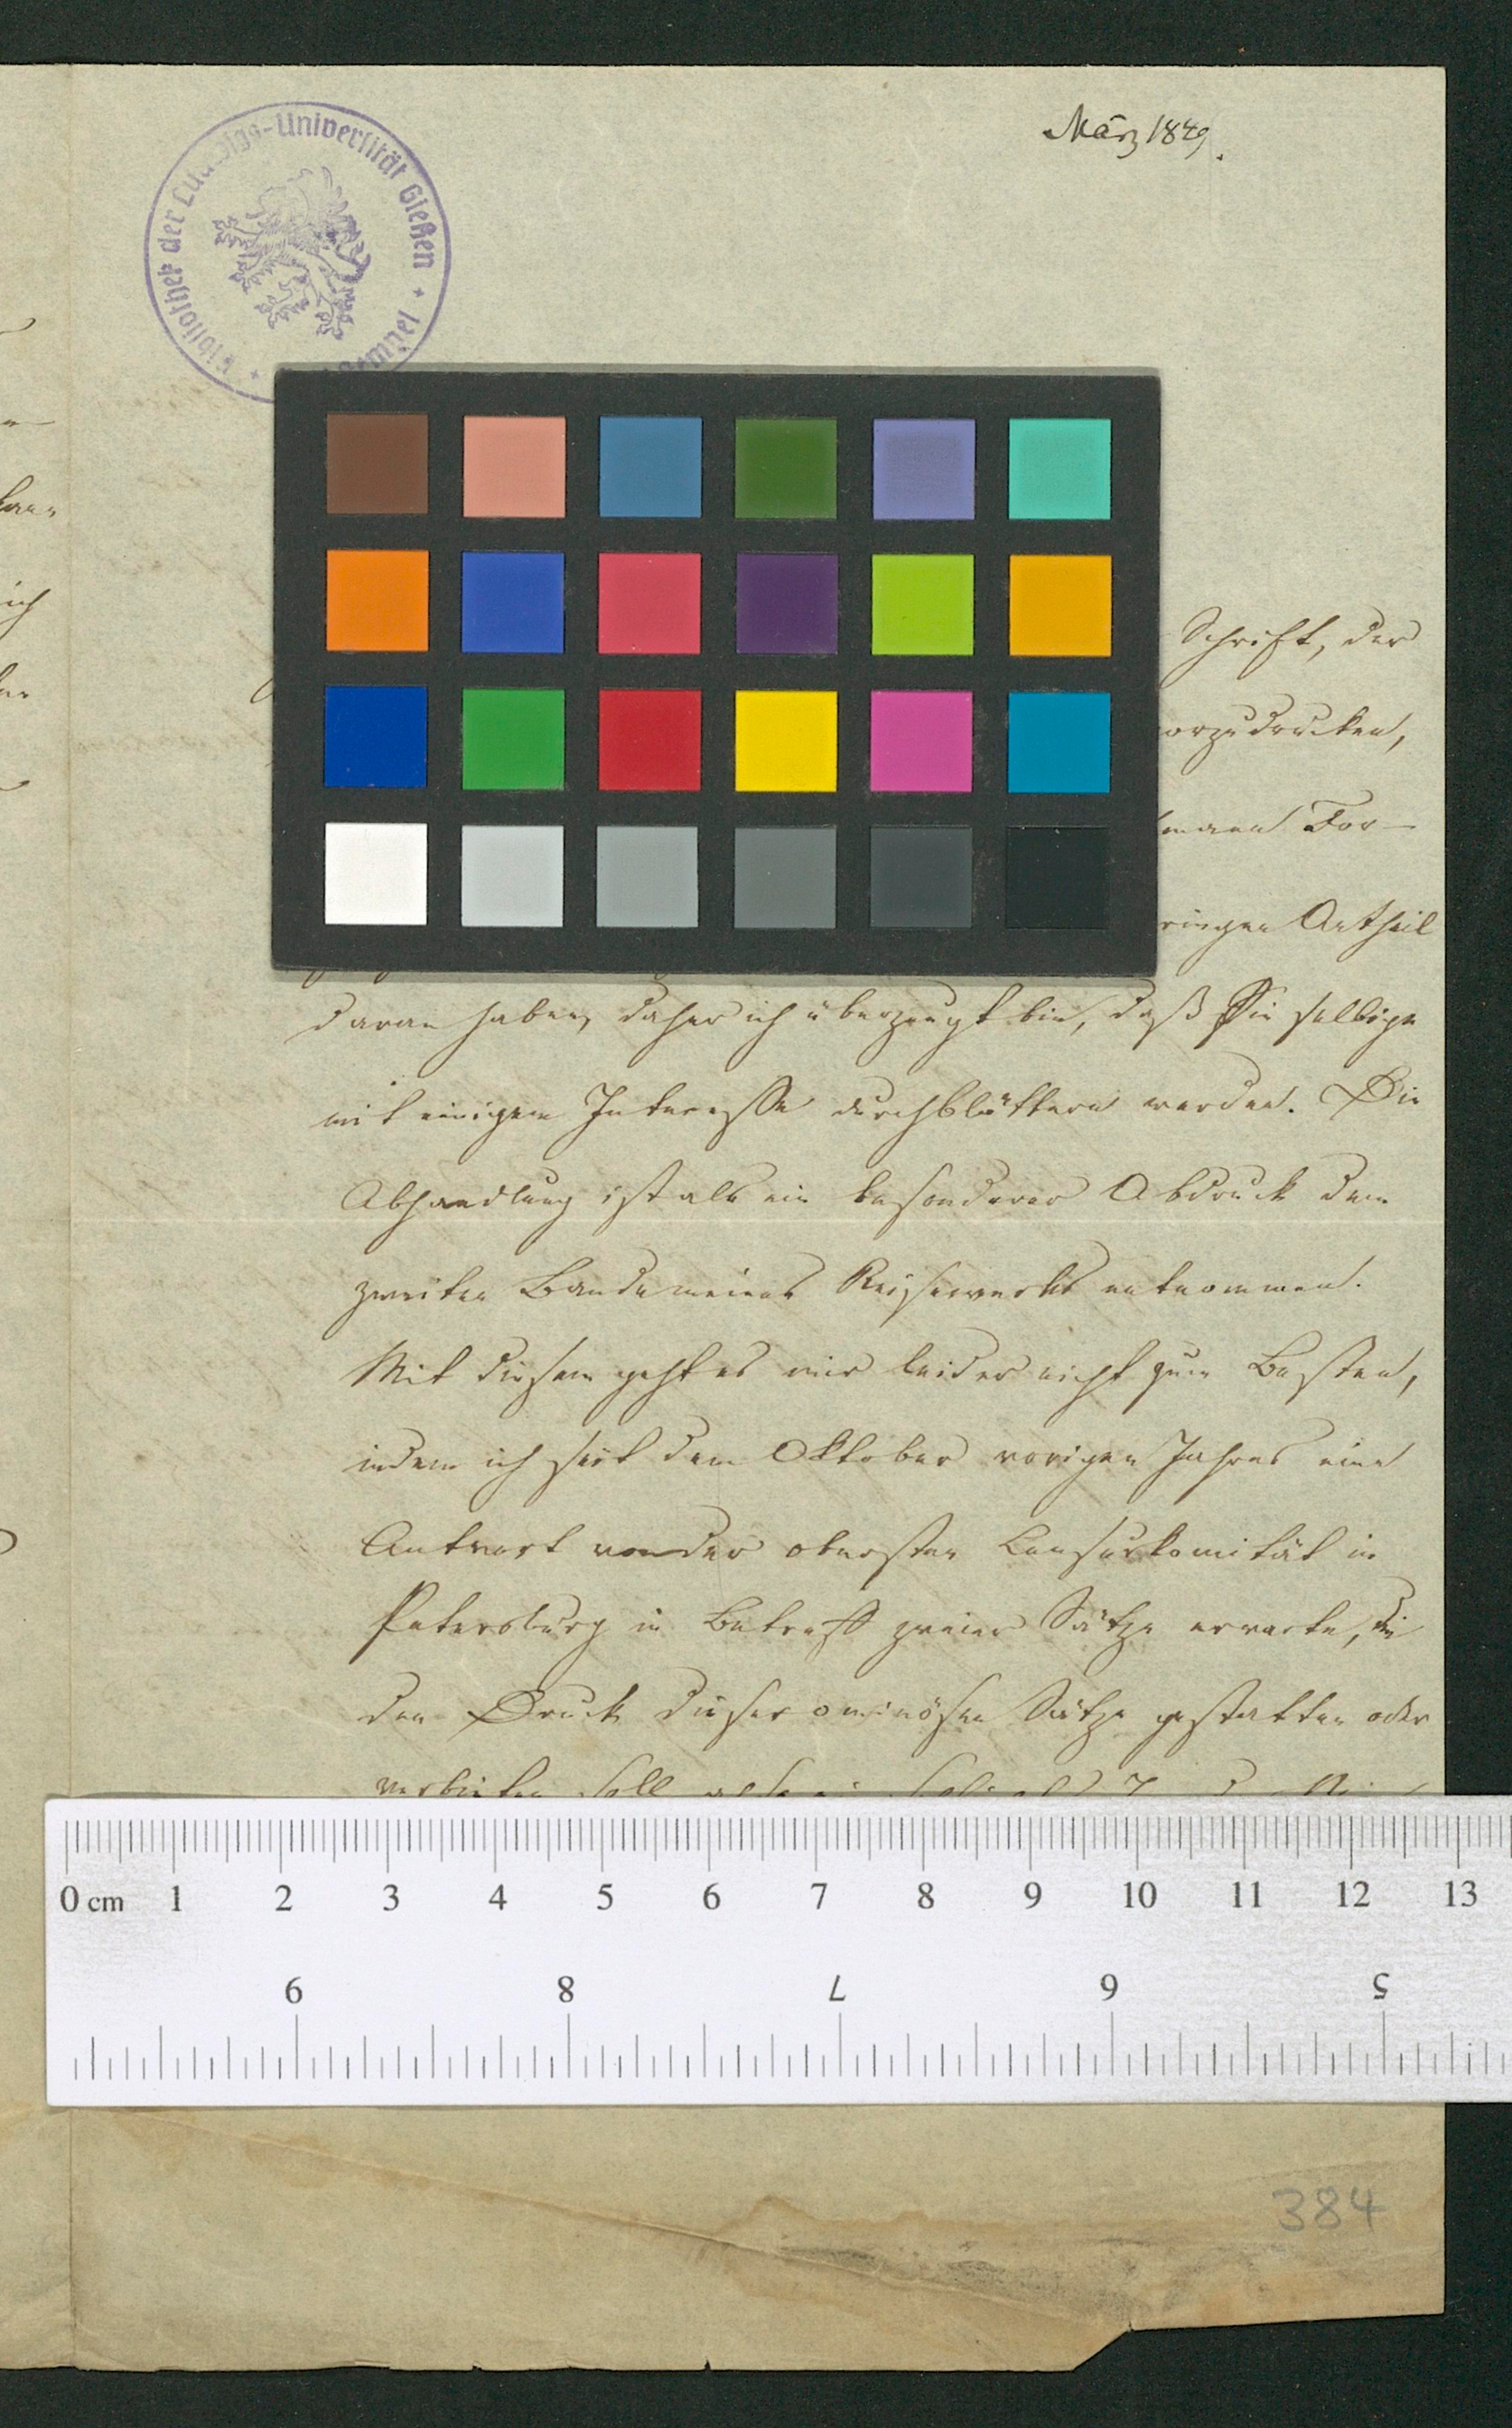 März 1849.
Bibliothek der Ludwigs-Universität Gießen
Schrift, der
vorzudrucken,
For-
ringen Antheil
daran haben, daher ich überzeugt bin, daß Sie selbige
mit einigem Interesse durchblättern werden. Die
Abhandlung ist als ein besonderer Abdruck dem
zweiten Bande meines Reisewerks entnommen.
Mit diesem geht es mir leider nicht zum Besten,
indem ich seit dem Oktober vorigen Jahres eine
Antwort von der obersten Censurkomität in
Petersburg in Betreff zweier Sätze erwarte, die
den Druck dieser ominösen Sätze gestatten oder
verbieten soll
0 cm 1 2 3 4 5 6 7 8 9 10 11 12 13
9 8 7 6 5
384